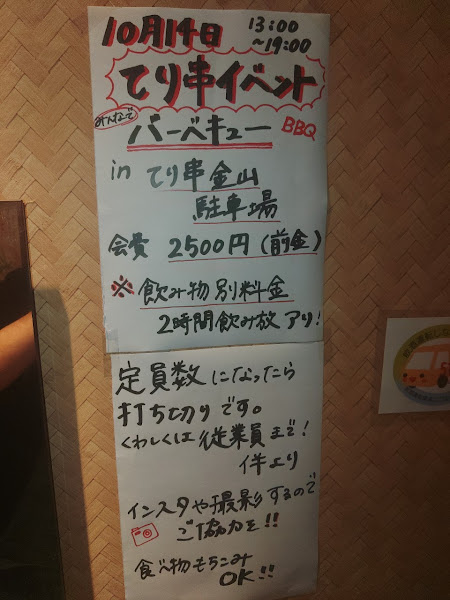 10月14日 13:00
~19:00
てり串イベント
みんなで
バーベキュー BBQ
in てり串金山
駐車場
会費 2500円(前金)
※飲み物別料金
2時間飲み放アリ!
定員数になったら
打ち切りです。
くわしくは従業員まで!
伴より
インスタや撮影するので
ご協力を!!
食べ物もちこみ
OK!!